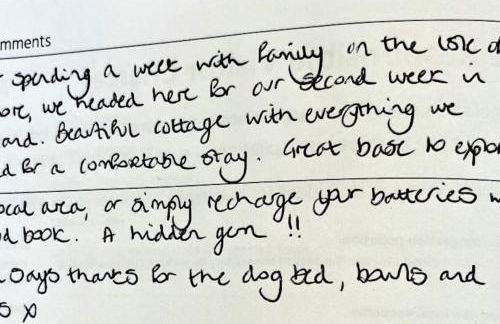 mments
spending a week with family on the Isle o
ore, we headed here for our second week in
and. Beautiful cottage with everything we
d for a comfortable stay. Great base to explo
ocal area, or simply recharge your batteries w
d book. A hidden gem !!
says thanks for the dog bed, bowls and
s x